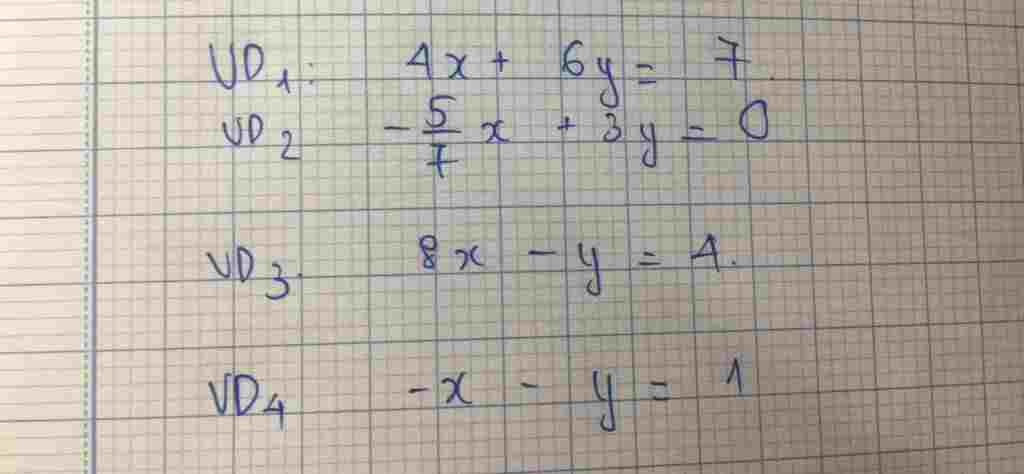 VD1: 4x + 6y = 7.
VD2 -5/7 x + 3y = 0
VD3. 8x - y = 4.
VD4 -x - y = 1